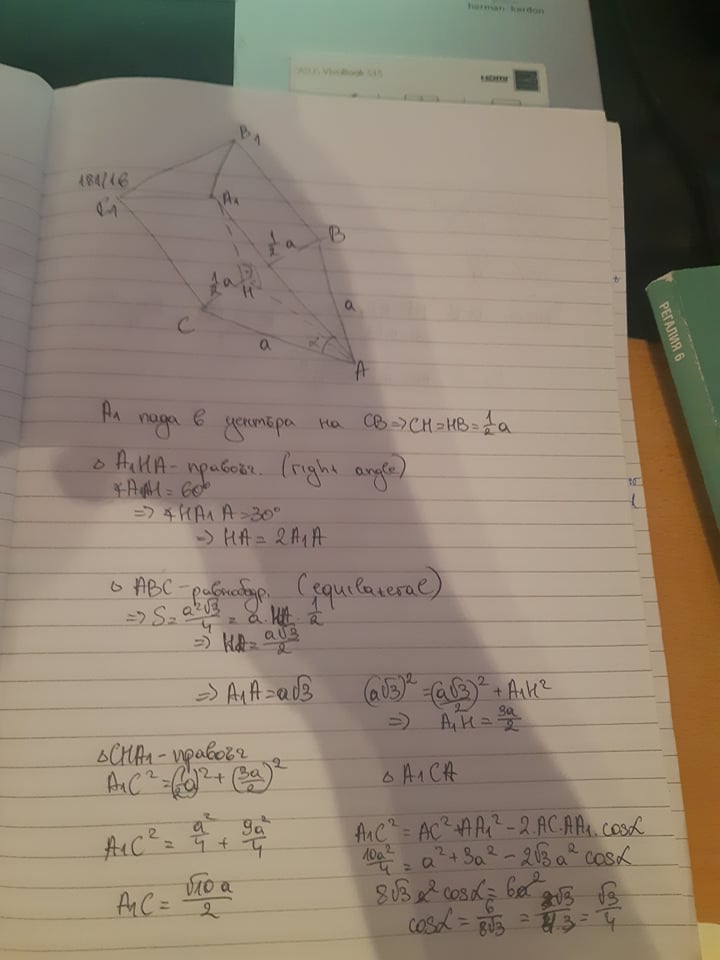 harman kardon
ASUS VivoBook S15
HDMI
РЕГАЛИЯ 6
B1
181/16
C1
A1
1/2 a
B
1/2 a
H
C
a
a
α
A
A1 пада в центъра на CB => CH = HB = 1/2 a
△ A1HA - правоъг. (right angle)
∢A1AH = 60°
=> ∢HA1A = 30°
=> HA = 2A1A
△ ABC - равнобедр. (equilateral)
=> S = a²√3/4 = a.HA.1/2
=> HA = a√3/2
=> A1A = a√3
(a√3)² = (a√3/2)² + A1H²
=> A1H = 3a/2
△CHA1 - правоъг
A1C² = (1/2a)² + (3a/2)²
A1C² = a²/4 + 9a²/4
A1C = √10 a/2
△ A1CA
A1C² = AC² + AA1² - 2.AC.AA1.cosα
10a²/4 = a² + 3a² - 2√3a² cosα
8√3 a² cosα = 6a²
cosα = 6/8√3 = = √3/4